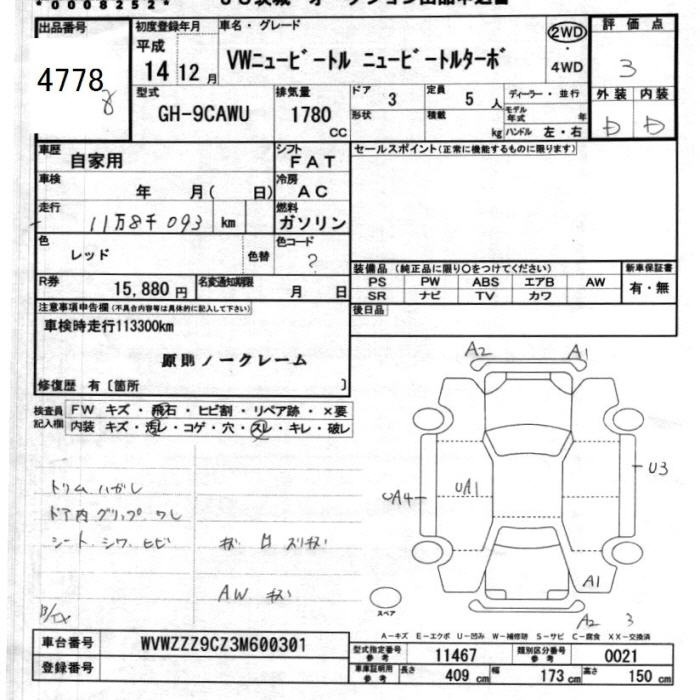 *0008252*
出品番号
4778
8
初度登録年月
平成
14 12月
車名・グレード
VWニュービートル ニュービートルターボ
2WD
・
4WD
評価点
3
型式
GH-9CAWU
排気量
1780
CC
ドア
3
定員
5 人
ディーラー・並行
形状
積載
kg
モデル年式
年
ハンドル 左・右
外装
内装
D
D
車歴
自家用
シフト
FAT
セールスポイント(正常に機能するものに限ります)
車検
年 月( 日)
冷房
AC
走行
11万8千093 km
燃料
ガソリン
色
レッド
色替
色コード
?
R券
15,880円
名変通知期限
月 日
装備品 (純正品に限り○をつけてください)
PS PW ABS エアB AW
SR ナビ TV カワ
新車保証書
有・無
後日品
注意事項申告欄 (不具合内容等は具体的に記入して下さい)
車検時走行113300km
原則ノークレーム
修復歴 有〔箇所 〕
検査員記入欄
FW キズ・飛石・ヒビ割・リペア跡・×要
内装 キズ・汚レ・コゲ・穴・スレ・キレ・破レ
トリムハガレ
ドア内グリップワレ
シート、シワ、ヒビ
AW キズ
A2
A1
UA4
UA1
U3
A1
A2
3
スペア
A-キズ E-エクボ U-凹み W-補修跡 S-サビ C-腐食 XX-交換済
車台番号
WVWZZZ9CZ3M600301
登録番号
型式指定番号
参考
11467
類別区分番号
参考
0021
車庫証明用
参考
長さ
409 cm
幅
173 cm
高さ
150 cm